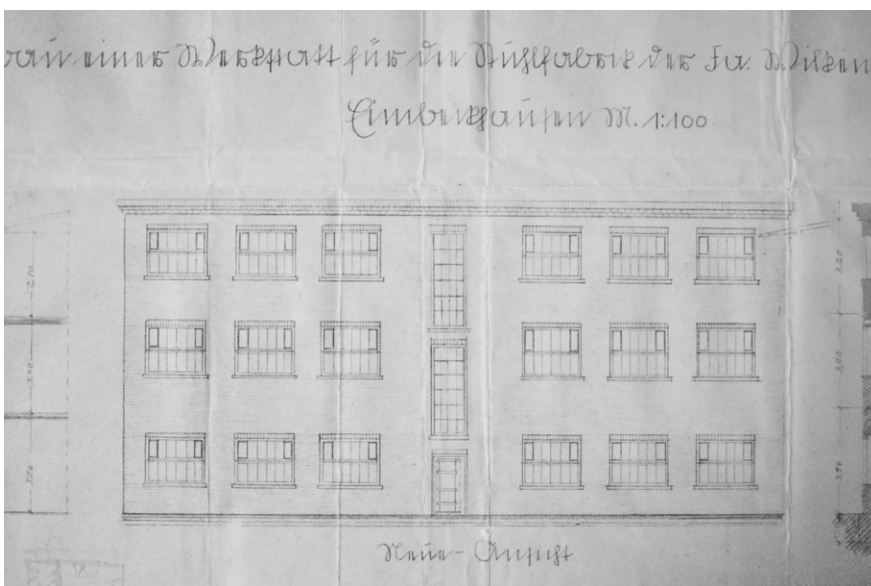 bau einer Werkstatt für die Stuhlfabrik der Fa. Wilken
Eimbeckhausen M. 1:100
3,20
3,00
3,00
Neue-Ansicht